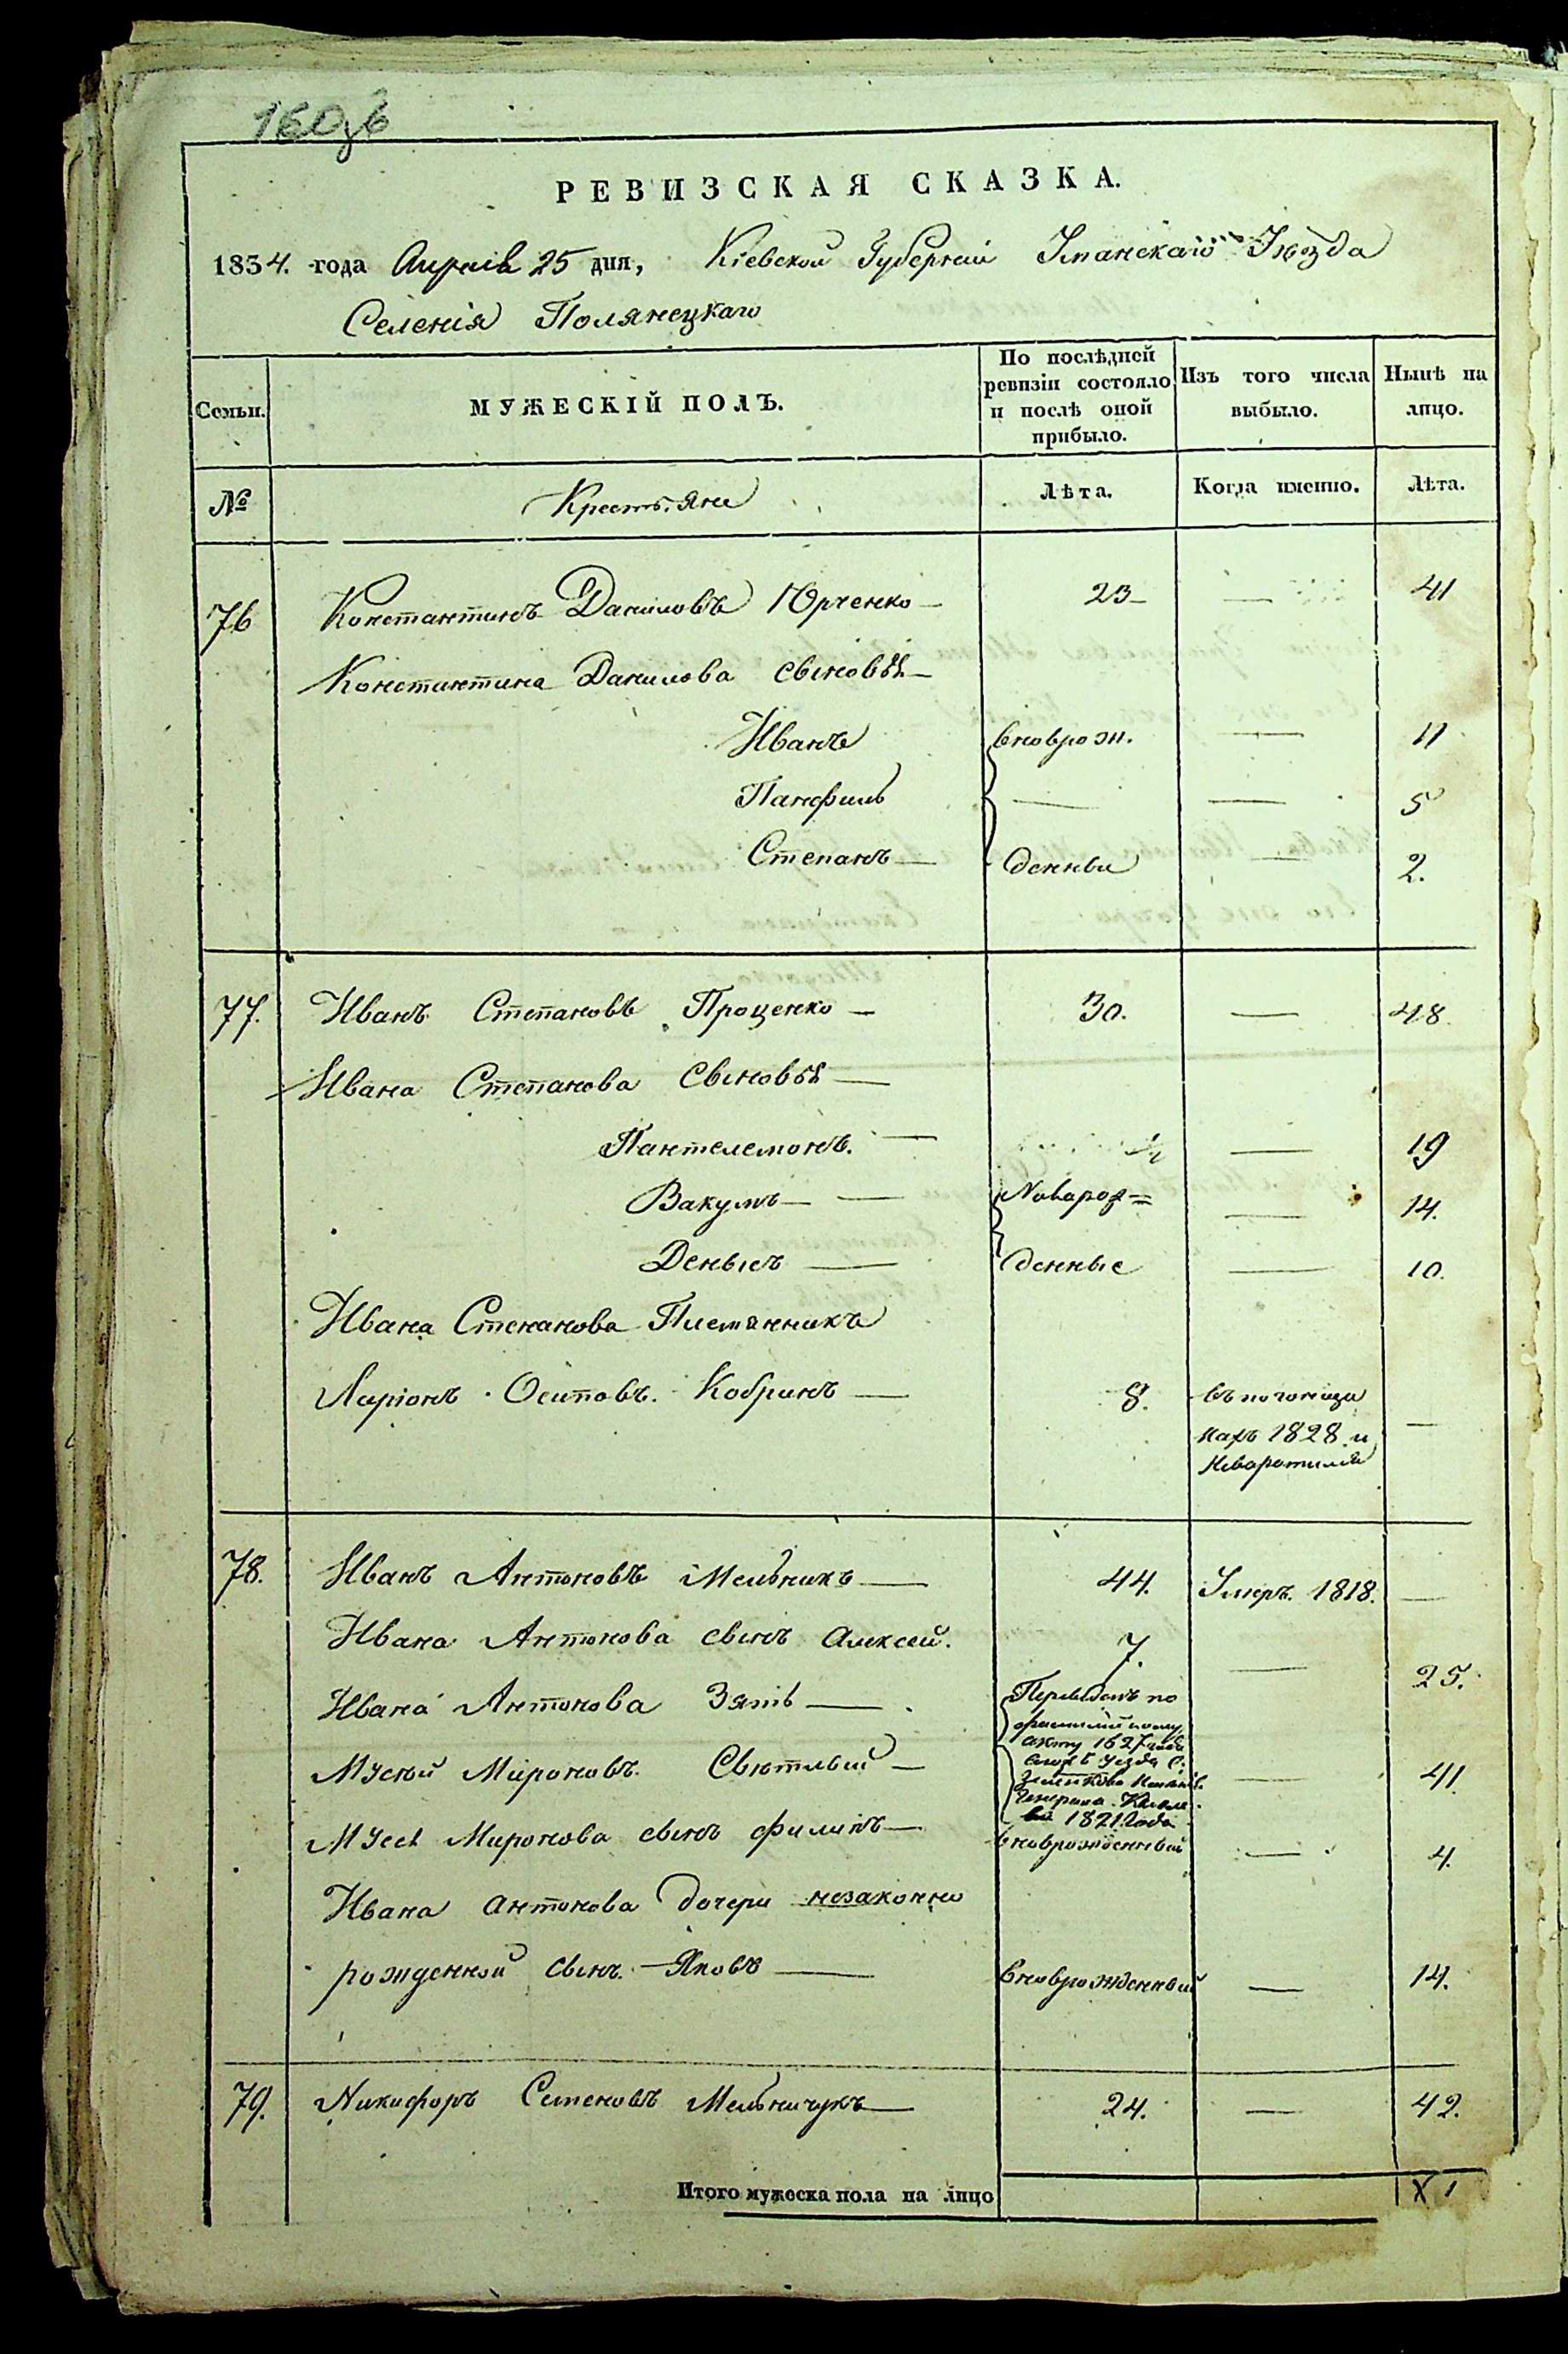 160зв
РЕВИЗСКАЯ СКАЗКА.
1834. года Апреля 25 дня, Кіевской Губерніи Уманскаго Уѣзда
Селенія Полянецкаго
Семьи. МУЖЕСКІЙ ПОЛЪ. По послѣдней ревизіи состояло и послѣ оной прибыло. Изъ того числа выбыло. Нынѣ на лицо.
№ Крестьяне Лѣта. Когда именно. Лѣта.
76 Константинъ Даниловъ Юрченко 23 — 41
Константина Данилова сыновья
Иванъ вноврож. — 11
Панфилъ — — 5
Степанъ денныи — 2.
77. Иванъ Степановъ Проценко 30. — 48
Ивана Степанова сыновья
Пантелемонъ. — 19
Вакумъ Новорож= — 14.
Денысъ денные — 10.
Ивана Степанова Племянникъ
Ларіонъ Осиповъ Кобринъ 8. —
1828 и
78. Иванъ Антоновъ Мельникъ 44. Умеръ. 1818. —
Ивана Антонова сынъ Алексей. 7. — 25.
Ивана Антонова Зять Переведенъ по
акту 1827 года
Мусій Мироновъ Свѣтлый — 41.
1821 года
Мусея Миронова сынъ Филипъ вноврожденный — 4.
Ивана Антонова дочери незаконно
рожденной сынъ Яковъ вноврожденный — 14.
79. Никифоръ Семеновъ Мельничукъ 24. — 42.
Итого мужеска пола на лицо